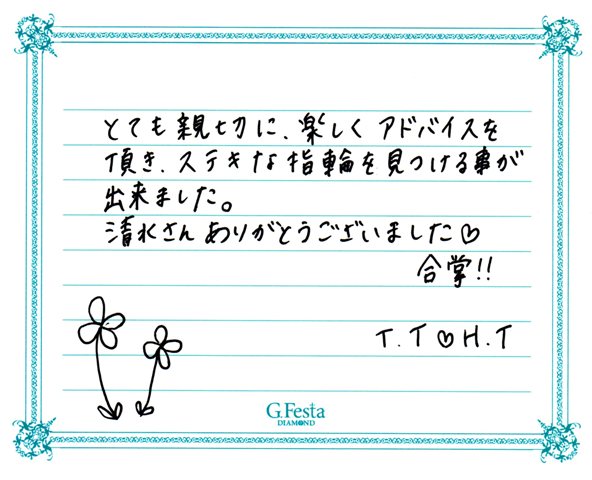 とても親切に、楽しくアドバイスを
頂き、ステキな指輪を見つける事が
出来ました。
清水さんありがとうございました♡
合掌!!
T.T♡H.T
G.Festa
DIAMOND